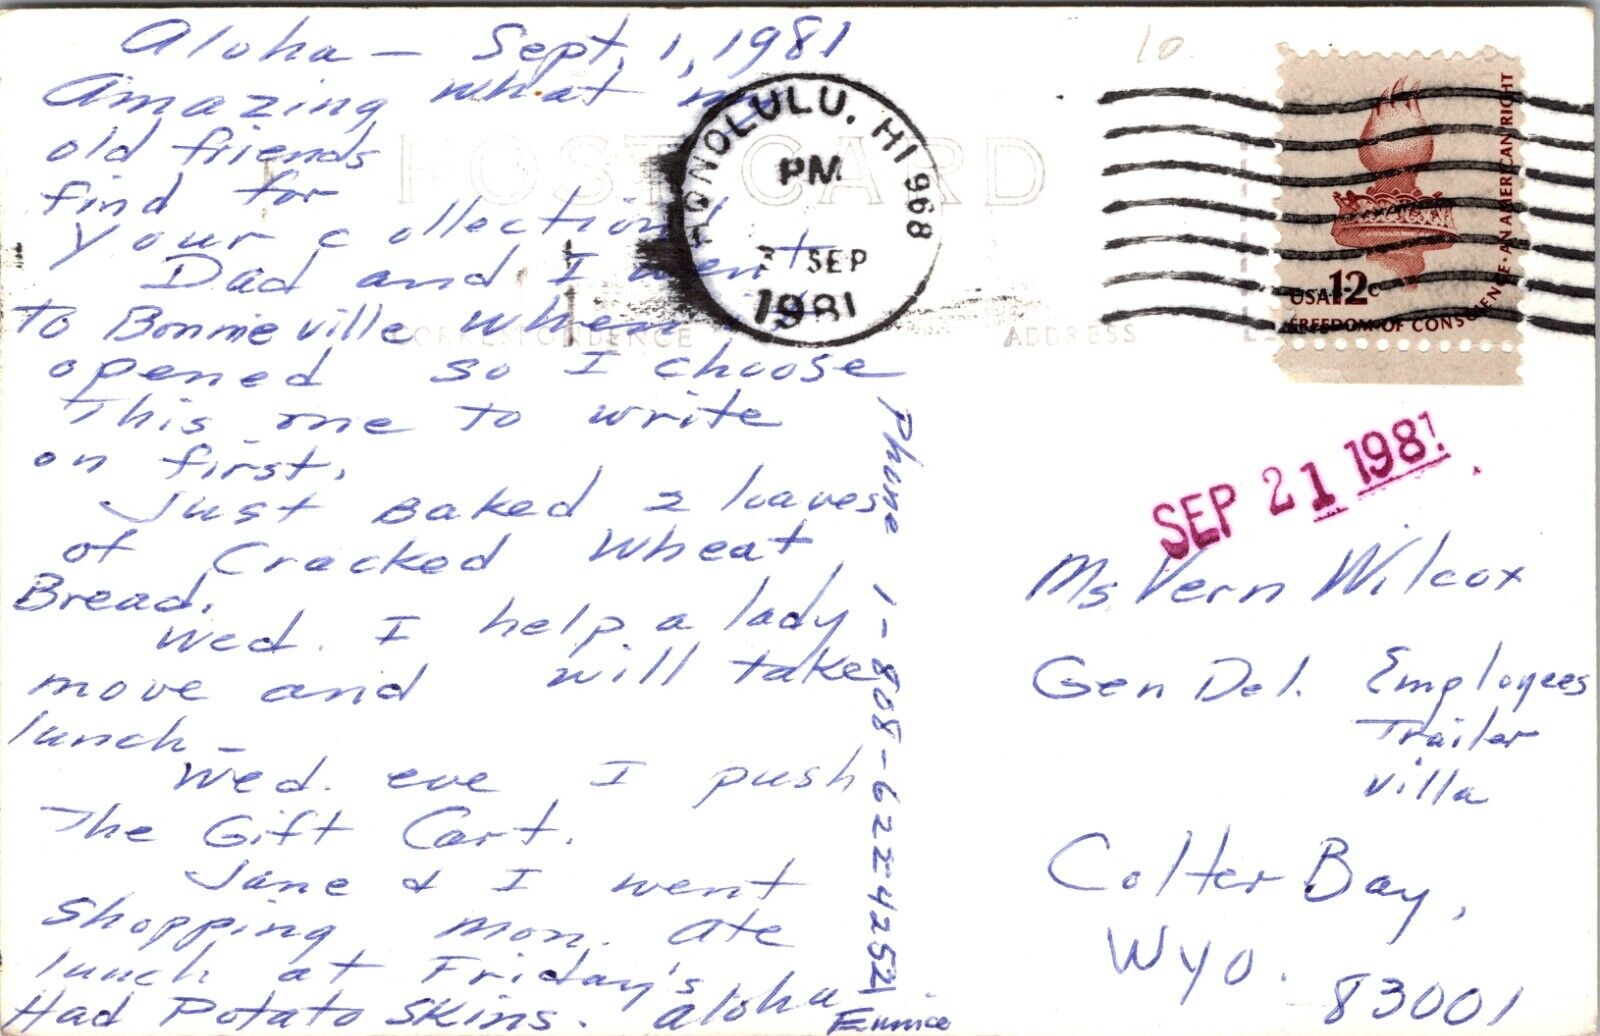 Aloha — Sept. 1, 1981
Amazing what my
old friends
find for
your collection!
Dad and I went
to Bonnieville when
opened so I choose
This one to write
on first.
Just Baked 2 loaves
of Cracked Wheat
Bread.
Wed. I help a lady
move and will take
lunch —
Wed. eve I push
The Gift Cart.
Jane & I went
Shopping Mon. Ate
lunch at Friday's
Had Potato Skins. Aloha
Eunice
Phone 1-808-6224252
POST CARD
CORRESPONDENCE
ADDRESS
HONOLULU, HI 968
PM
SEP
1981
10
USA 12c
FREEDOM OF CONSCIENCE • AN AMERICAN RIGHT
SEP 21 1981
Ms Vern Wilcox
Gen Del. Employees
Trailer
Villa
Colter Bay,
Wyo. 83001